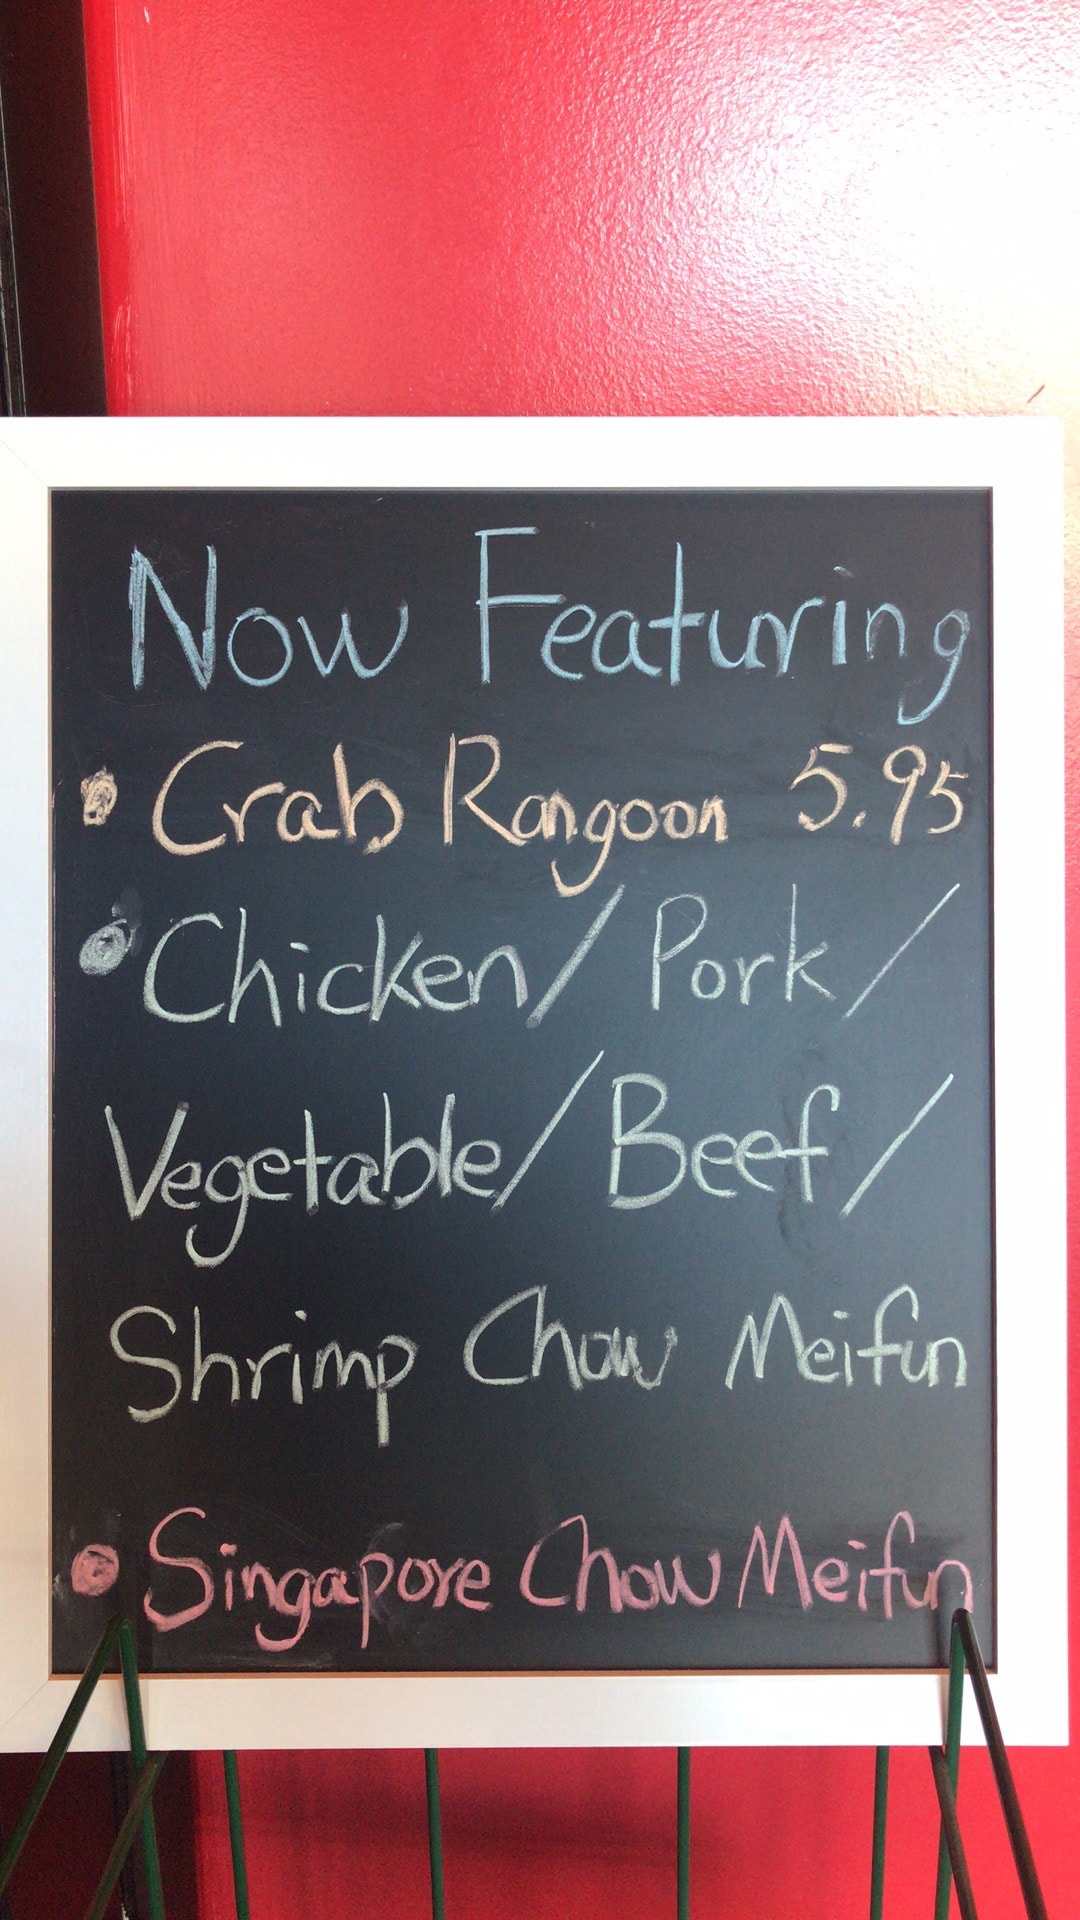 Now Featuring
• Crab Rangoon 5.95
• Chicken/ Pork/
Vegetable/ Beef/
Shrimp Chow Meifun
• Singapore Chow Meifun